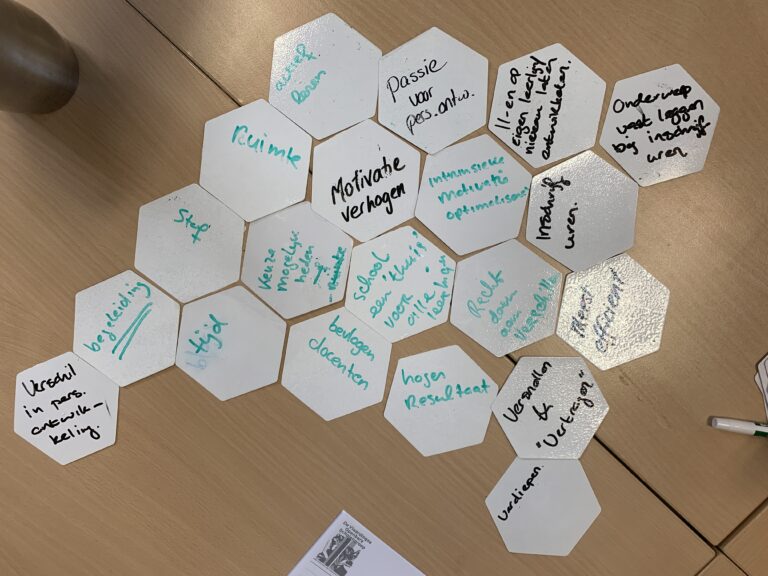 actief
leren
Passie
voor
pers. ontw.
ll-en op
eigen leerlijn/
niveau laten
ontwikkelen.
Onderwerp
vast leggen
bij inschrijf
uren
Ruimte
Motivatie
verhogen
Intrinsieke
motivatie
optimaliseren
Inschrijf
uren.
Stof
keuze
mogelijk
heden
school
een "thuis"
voor
alle
leerlingen
Recht
doen
aan
verschille
Meest
efficiënt
begeleiding
tijd
bevlogen
docenten
hogen
Resultaat
Versnellen
&
"Vertragen"
Verschil
in pers.
ontwik-
keling.
Verdiepen.